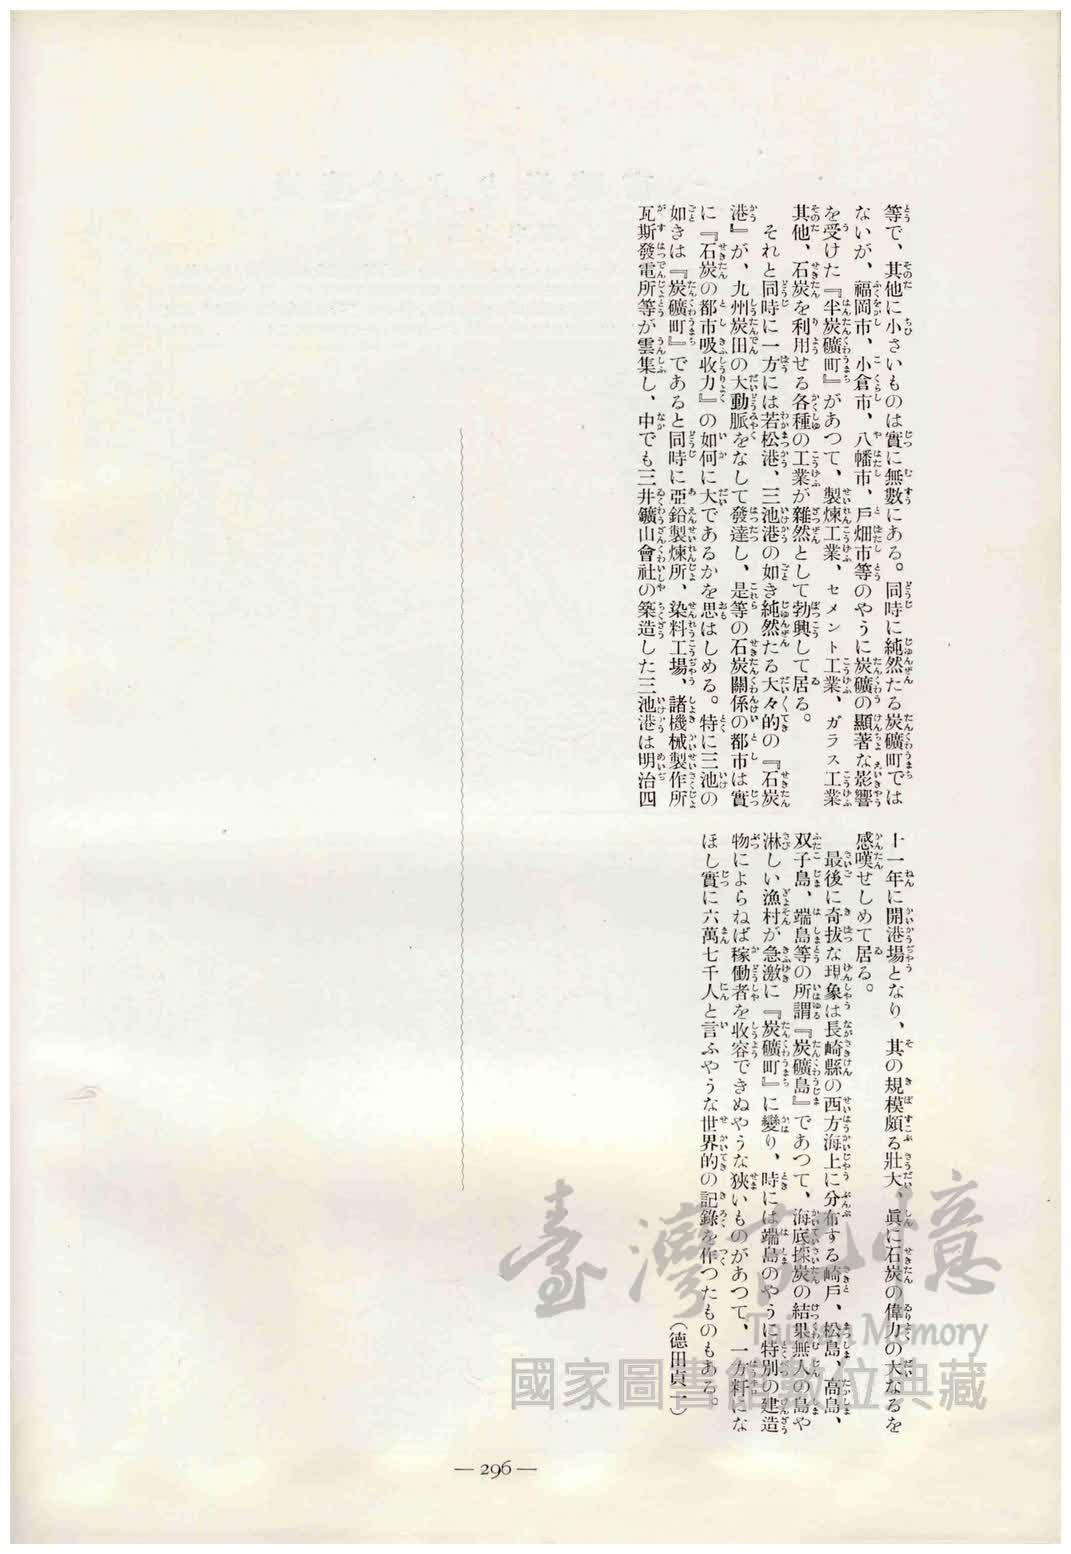 等で、其他に小さいものは實に無數にある。同時に純然たる炭礦町では
ないが、福岡市、小倉市、八幡市、戶畑市等のやうに炭礦の顯著な影響
を受けた『半炭礦町』があつて、製煉工業、セメント工業、ガラス工業
其他、石炭を利用せる各種の工業が雜然として勃興して居る。
それと同時に一方には若松港、三池港の如き純然たる大々的の『石炭
港』が、九州炭田の大動脈をなして發達し、是等の石炭關係の都市は實
に『石炭の都市吸收力』の如何に大であるかを思はしめる。特に三池の
如きは『炭礦町』であると同時に亞鉛製煉所、染料工場、諸機械製作所
瓦斯發電所等が雲集し、中でも三井鑛山會社の築造した三池港は明治四
十一年に開港場となり、其の規模頗る壯大、眞に石炭の偉力の大なるを
感嘆せしめて居る。
最後に奇拔な現象は長崎縣の西方海上に分布する崎戶、松島、高島、
双子島、端島等の所謂『炭礦島』であつて、海底採炭の結果無人の島や
淋しい漁村が急激に『炭礦町』に變り、時には端島のやうに特別の建造
物によらねば稼働者を收容できぬやうな狹いものがあつて、一方粁にな
ほし實に六萬七千人と言ふやうな世界的の記錄を作つたものもある。
(德田貞一)
— 296 —
臺灣記憶
Taiwan Memory
國家圖書館數位典藏